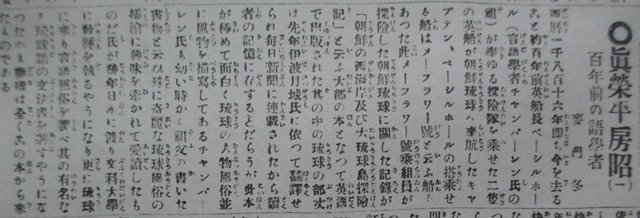 ◎眞榮平房昭(一)
百年前の語學者
麥門冬
西暦一千八百十六年即ち今を去る
ある約百年前英船長ベーシルホー
ル(言語學者チャムバーレン氏の
祖)が率ゆる探險隊を乘せた二隻
の英船が朝鮮琉球へ來航したキャ
プテン、ベーシルホールの搭乘せ
る船はメーフラワー號と云ふ船で
あつた此メーフラワー號乘組員が
探險した朝鮮琉球に關した記録が
『朝鮮の西海岸及び大琉球島探險
記』と云ふ大部の本となつて英國
で出版された其の中の琉球の部丈
け先年伊波月城氏に依つて飜譯せ
られ毎日新聞に連載されたから讀
者の記憶に存するとだらうが此本
が極めて面白く琉球の人物風俗並
に風物を描寫してあるチャンバー
レン氏も幼い時から祖父の書いた
書物と云ひ殊に奇麗な琉球風俗の
描繪に興味を惹かれて愛讀したも
のだ氏が後年日本に渡り文科大學
に敎鞭を執るやうになり更に琉球
に來り言語風俗を調べ其の有名な
る琉球語の文法書を著すやうにな
つたのも動機は全く此の本から來
たものである